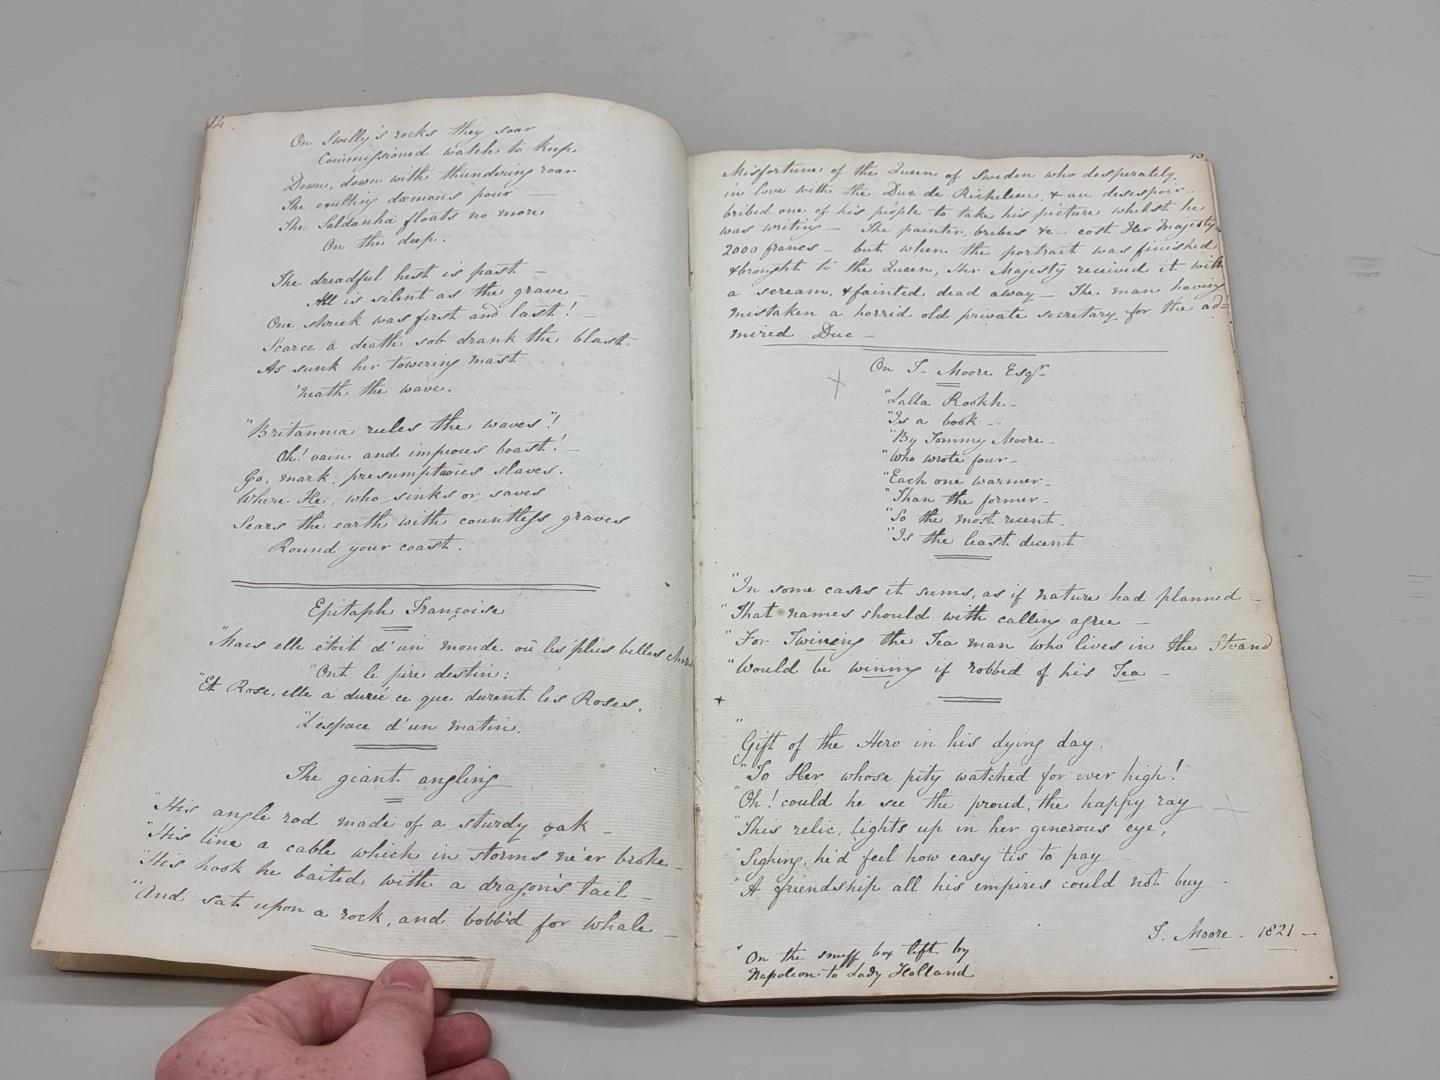 14
On Swilly's rocks they soar
Commissioned watch to keep
Down, down with thundering roar
The exulting dæmons pour —
The Saldanha floats no more
On the deep.
The dreadful hest is past —
All is silent as the grave —
One shriek was first and last! —
Scarce a death sob drank the blast —
As sunk her towering mast
'neath the wave.
"Britannia rules the waves"!
Oh! vain and impious boast! —
Go, mark, presumptuous slaves.
Where He, who sinks or saves
Sears the earth with countless graves
Round your coast.
Epitaph Françoise
"Mais elle étoit d'un monde où les plus belles choses
"Ont le pire destin;
"Et Rose, elle a durée ce que durent les Roses,
"L'espace d'un matin.
The giant angling
"His angle rod made of a sturdy oak —
"His line a cable which in storms ne'er broke —
"His hook he baited with a dragon's tail —
"And sat upon a rock, and bobb'd for whale —
Misfortune of the Queen of Sweden who desperately
in love with the Duc de Richelieu, & au desespoir..
bribed one of his people to take his picture whilst he
was writing — The painter, bribes &c.. cost Her Majesty
2000 francs — but when the portrait was finished
& brought to the Queen, Her Majesty received it with
a scream, & fainted dead away — The man having
mistaken a horrid old private secretary for the ad=
mired Duc —
On T— Moore Esqr—
"Lalla Rookh —
"Is a book —
"By Tommy Moore —
"Who wrote four —
"Each one warmer —
"Than the former —
"So the most recent —
"Is the least decent
"In some cases it seems, as if nature had planned —
"That names should with calling agree —
"For Twining the Tea man who lives in the Strand
"Would be wining if robbed of his Tea —
+
"Gift of the Hero in his dying day,
"To Her whose pity watched for ever nigh!
"Oh! could he see the proud, the happy ray
"This relic, lights up in her generous eye,
"Sighing, he'd feel how easy 'tis to pay
"A friendship all his empires could not buy —
T. Moore — 1821 —
+ On the snuff box left by
Napoleon to Lady Holland